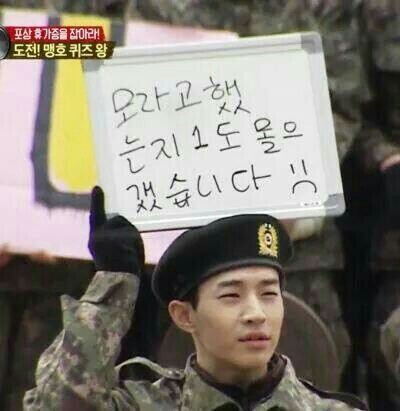 포상 휴가증을 잡아라!
도전! 맹호 퀴즈 왕
모라고했
는지 1도 몰으
겠습니다 :(